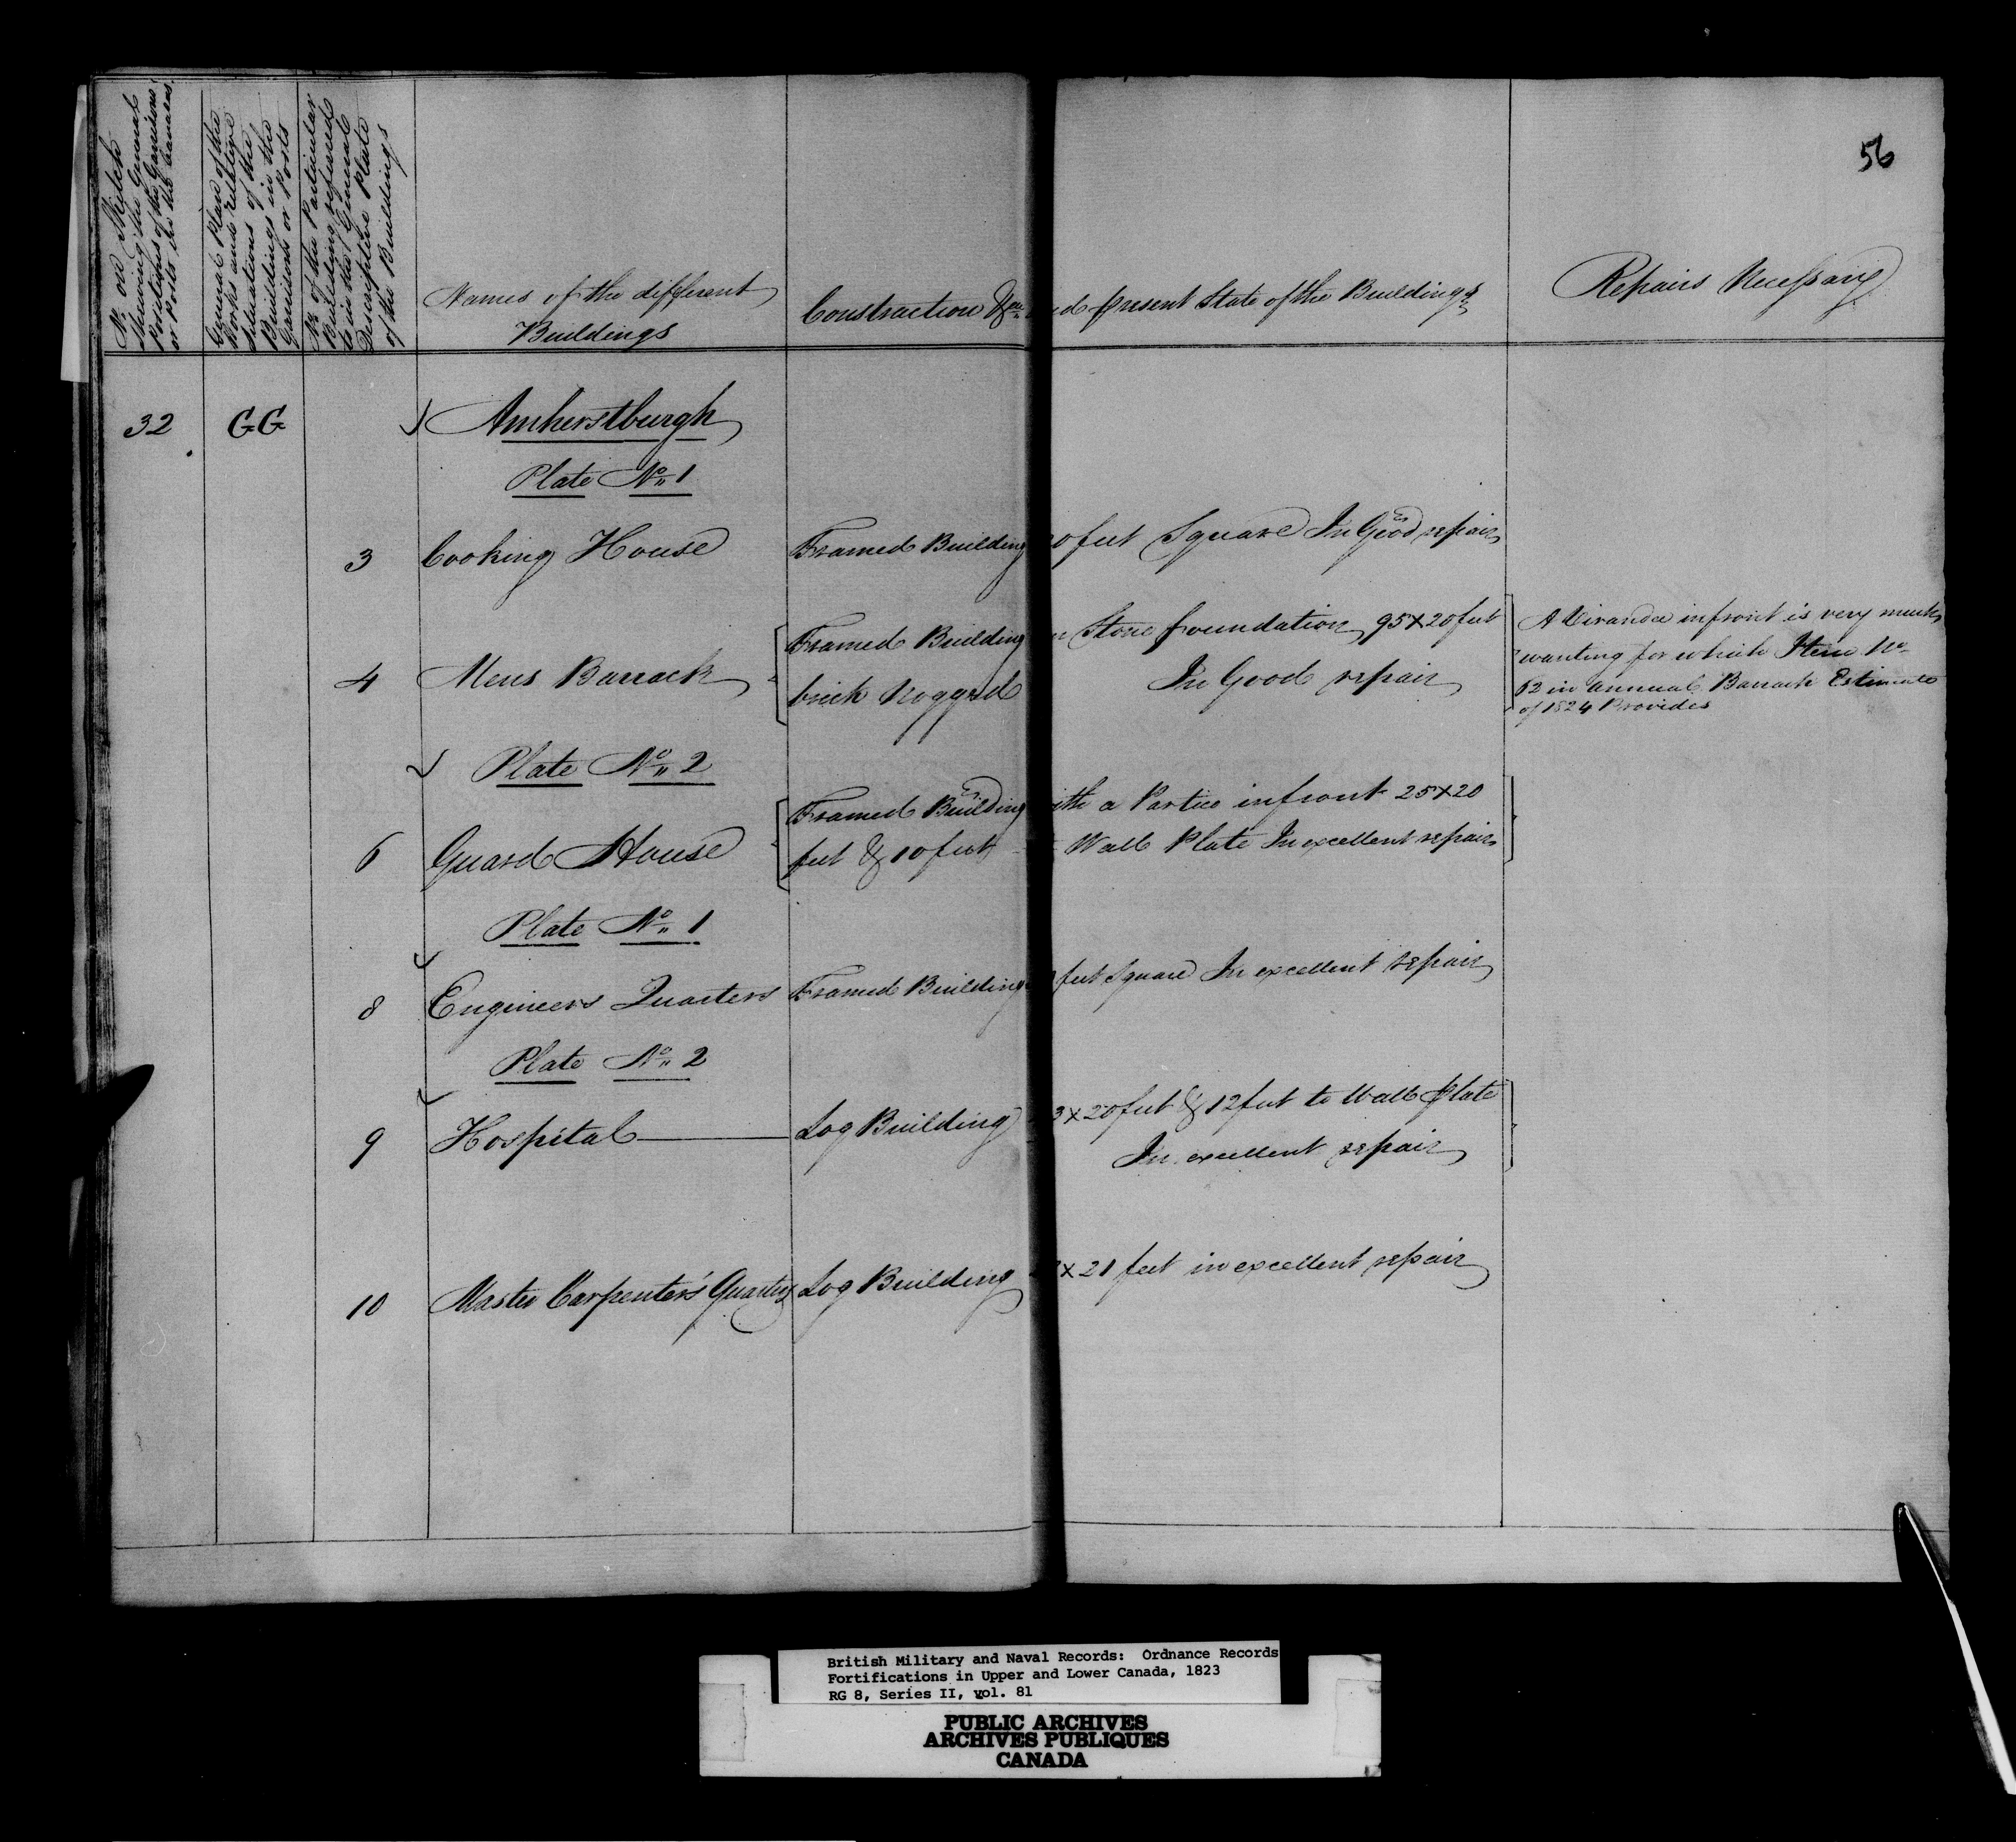 56
No. on Sketch
Shewing the General
Positions of the Garrisons
or Posts in the Canadas.
General Plan of the
Works and relative
Situations of the
Buildings in the
Garrisons or Posts
No. of the Particular
Building referred
to in the General
Descriptive Plate
of the Buildings
Names of the different
Buildings
Construction &ca. and present State of the Buildings
Repairs Necessary
32 GG Amherstburgh
Plate No. 1
3 Cooking House Framed Building 0 feet Square In Good repair
4 Mens Barrack Framed Building Stone foundation 95 x 20 feet
brick Nogged In Good repair
A Virandee infront is very much
wanting for which Item No.
62 in annual Barrack Estimate
of 1824 Provides
Plate No. 2
6 Guard House Framed Building with a Portico infront 25 x 20
feet & 10 feet Wall Plate In excellent repair
Plate No. 1
8 Engineers Quarters Framed Building feet Square In excellent repair
Plate No. 2
9 Hospital Log Building 3 x 20 feet & 12 feet to Wall plate
In excellent repair
10 Master Carpenter's Quarters Log Building x 21 feet in excellent repair
British Military and Naval Records: Ordnance Records
Fortifications in Upper and Lower Canada, 1823
RG 8, Series II, vol. 81
PUBLIC ARCHIVES
ARCHIVES PUBLIQUES
CANADA